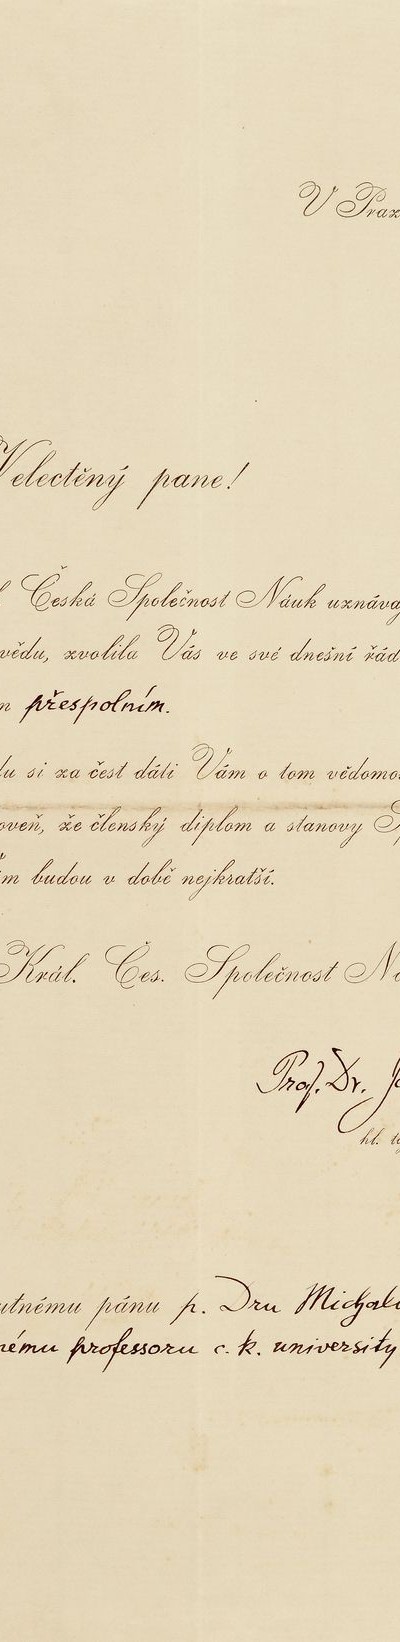 V Praz
Velectěný pane!
Česká Společnost Náuk uznáva
vědu, zvolila Vás ve své dnešní řád
přespolním.
du si za čest dáti Vám o tom vědomos
oveň, že členský diplom a stanovy Sp
ám budou v době nejkratší.
Král. Čes. Společnost Ná
Prof. Dr. Jo
hl. t
utnému pánu p. Dru Michalu
nému professoru c. k. university